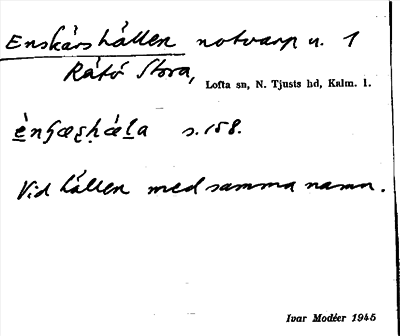 Enskärshällen notvarp u. 1
Råtö Stora,
Lofta sn, N. Tjusts hd, Kalm. l.
s. 158.
Vid hällen med samma namn.
Ivar Modéer 1945